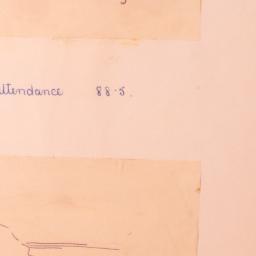 attendance 88.5.